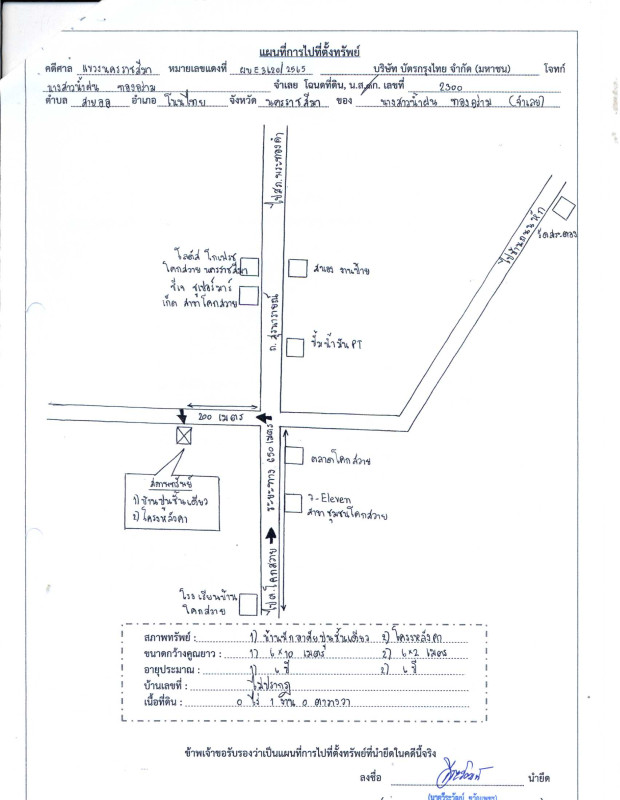 แผนที่การไปที่ตั้งทรัพย์
คดีศาล แขวงนครราชสีมา หมายเลขแดงที่ ผบE3620/2565 บริษัท บัตรกรุงไทย จำกัด (มหาชน) โจทก์
นางสาวน้ำฝน ทองอร่าม จำเลย โฉนดที่ดิน, น.ส.3ก. เลขที่ 2300
ตำบล สายออ อำเภอ โนนไทย จังหวัด นครราชสีมา ของ นางสาวน้ำฝน ทองอร่าม (จำเลย)
ไปสภ.พระทองคำ
วัดสระตอง
โลตัส โกเฟรช
โคกสวาย นครราชสีมา
ซีเจ ซุเปอร์มาร์
เก็ต สาขาโคกสวาย
ถ. สุรนารายณ์
ปั๊มน้ำมัน PT
200 เมตร
ระยะทาง 650 เมตร
ตลาดโคกสวาย
สภาพทรัพย์
1) บ้านปูนชั้นเดียว
2) โครงหลังคา
7-Eleven
สาขา ชุมชนโคกสวาย
ไป ต.โคกสวาย
โรงเรียนบ้าน
โคกสวาย
สภาพทรัพย์ : 1) บ้านพักอาศัยปูนชั้นเดียว 2) โครงหลังคา
ขนาดกว้างคูณยาว : 1) 6×10 เมตร 2) 6×2 เมตร
อายุประมาณ : 1) 6 ปี 2) 6 ปี
บ้านเลขที่ : ไม่ปรากฏ
เนื้อที่ดิน : 0 ไร่ 1 งาน 0 ตารางวา
ข้าพเจ้าขอรับรองว่าเป็นแผนที่การไปที่ตั้งทรัพย์ที่นำยึดในคดีนี้จริง
ลงชื่อ นำยึด